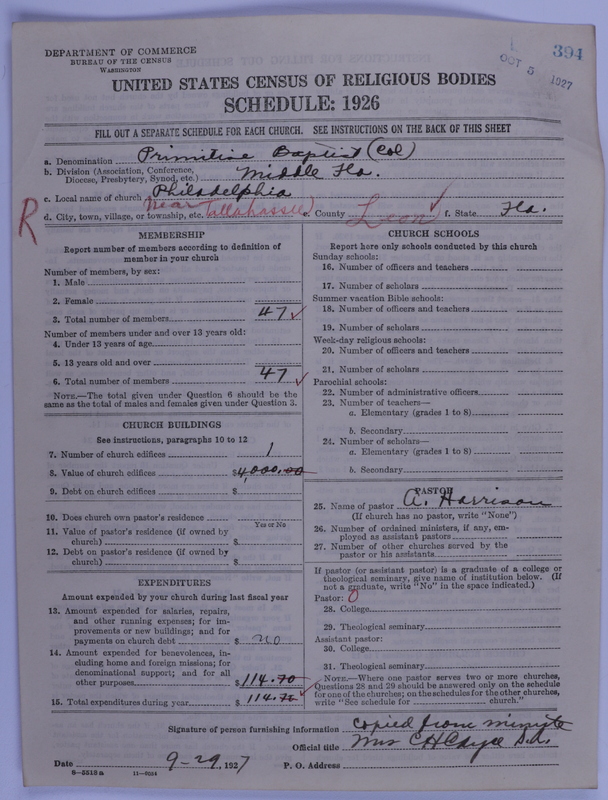 DEPARTMENT OF COMMERCE
BUREAU OF THE CENSUS
WASHINGTON
OCT 5 1927
394
UNITED STATES CENSUS OF RELIGIOUS BODIES
SCHEDULE: 1926
FILL OUT A SEPARATE SCHEDULE FOR EACH CHURCH. SEE INSTRUCTIONS ON THE BACK OF THIS SHEET
a. Denomination Primitive Baptist (Col)
b. Division (Association, Conference, Diocese, Presbytery, Synod, etc.) Middle Fla.
c. Local name of church Philadelphia
R
d. City, town, village, or township, etc. Near Tallahassee e. County Leon f. State Fla.
MEMBERSHIP
Report number of members according to definition of
member in your church
Number of members, by sex:
1. Male
2. Female
3. Total number of members 47
Number of members under and over 13 years old:
4. Under 13 years of age
5. 13 years old and over
6. Total number of members 47
NOTE.—The total given under Question 6 should be the
same as the total of males and females given under Question 3.
CHURCH BUILDINGS
See instructions, paragraphs 10 to 12
7. Number of church edifices 1
8. Value of church edifices $4,000.00
9. Debt on church edifices $
10. Does church own pastor's residence
Yes or No
11. Value of pastor's residence (if owned by
church) $
12. Debt on pastor's residence (if owned by
church) $
EXPENDITURES
Amount expended by your church during last fiscal year
13. Amount expended for salaries, repairs,
and other running expenses; for im-
provements or new buildings; and for
payments on church debt $ no
14. Amount expended for benevolences, in-
cluding home and foreign missions; for
denominational support; and for all
other purposes $114.70
15. Total expenditures during year $ 114.70
CHURCH SCHOOLS
Report here only schools conducted by this church
Sunday schools:
16. Number of officers and teachers
17. Number of scholars
Summer vacation Bible schools:
18. Number of officers and teachers
19. Number of scholars
Week-day religious schools:
20. Number of officers and teachers
21. Number of scholars
Parochial schools:
22. Number of administrative officers
23. Number of teachers—
a. Elementary (grades 1 to 8)
b. Secondary
24. Number of scholars—
a. Elementary (grades 1 to 8)
b. Secondary
PASTOR
25. Name of pastor A. Harrison
(If church has no pastor, write "None")
26. Number of ordained ministers, if any, em-
ployed as assistant pastors
27. Number of other churches served by the
pastor or his assistants
If pastor (or assistant pastor) is a graduate of a college or
theological seminary, give name of institution below. (If
not a graduate, write "No" in the space indicated.)
Pastor: 0
28. College
29. Theological seminary
Assistant pastor:
30. College
31. Theological seminary
NOTE.—Where one pastor serves two or more churches,
Questions 28 and 29 should be answered only on the schedule
for one of the churches; on the schedules for the other churches,
write "See schedule for church."
Signature of person furnishing information copied from minute
Official title Mrs C H
Date 9-29, 1927 P. O. Address
8-5518 a 11-6024